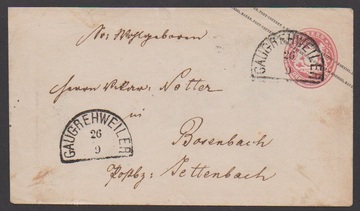 Sr. Wohlgeboren
Herrn Vikar Notter
in
Bosenbach
Postbz. Jettenbach
GAUGREHWEILER
26
9
GAUGREHWEILER
26
9